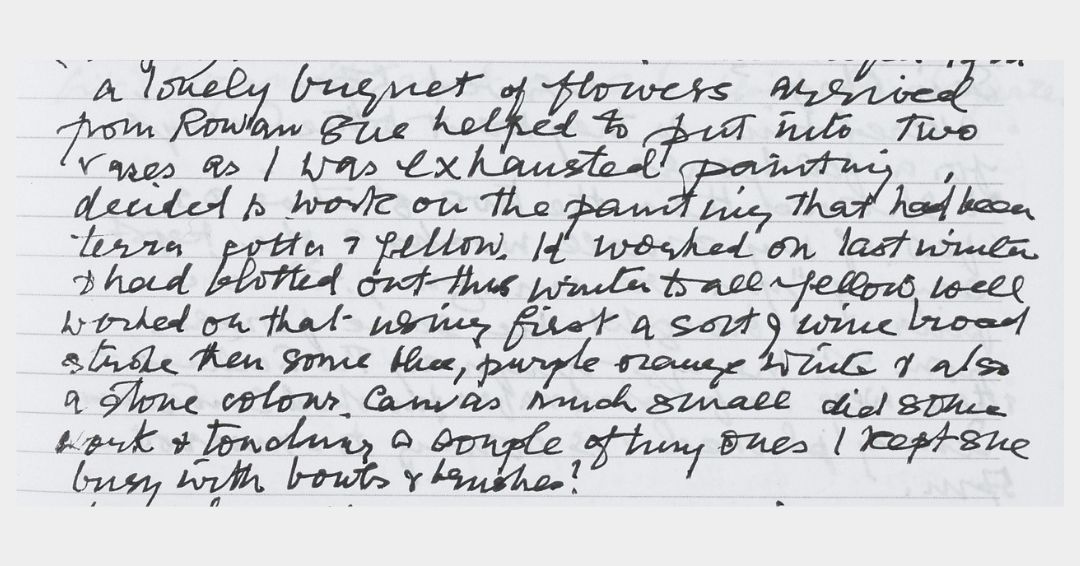 a lovely buqnet of flowers arrived
from Rowan Sue helped to put into two
vases as I was exhausted! painting,
decided to work on the painting that had been
terra cotta & yellow. Id worked on last winter
& had blotted out this winter to all yellow, well
worked on that using first a sort of wine broad
stroke then some blue, purple orange white & also
a stone colour. Canvas much small did some
work & touching a couple of tiny ones I kept Sue
busy with bowls & brushes!